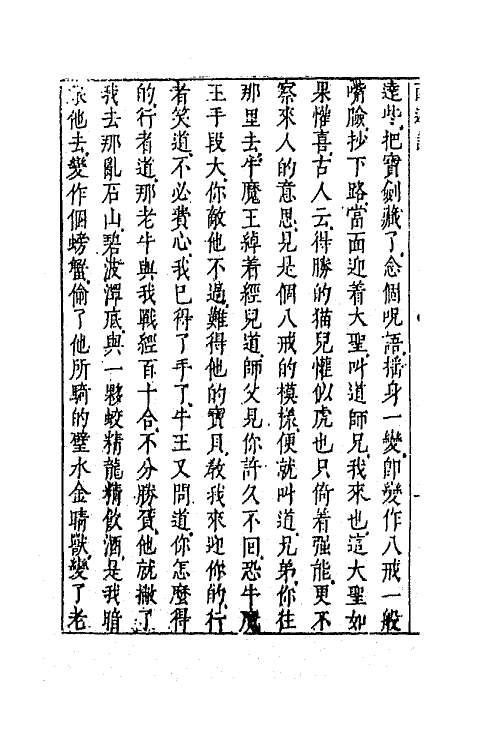 達些把寶劍藏了念個呪語揺身一變即變作八戒一般
嘴臉抄下路當面迎着大聖叫道師兄我來也這大聖如
果懽喜古人云得勝的猫兒懽似虎也只倚着强能更不
察來人的意思見是個八戒的模樣便就叫道兄弟你徃
那里去牛魔王綽着經兒道師父見你許久不回恐牛魔
王手段大你敵他不過難得他的寶貝教我來迎你的行
者笑道不必費心我已得了手了牛王又問道你怎麼得
的行者道那老牛與我戰經百十合不分勝負他就撇了
我去那亂石山碧波潭底與一夥蛟精龍精飲酒是我暗
他去變作個螃蟹偷了他所騎的璧水金睛獸變了老